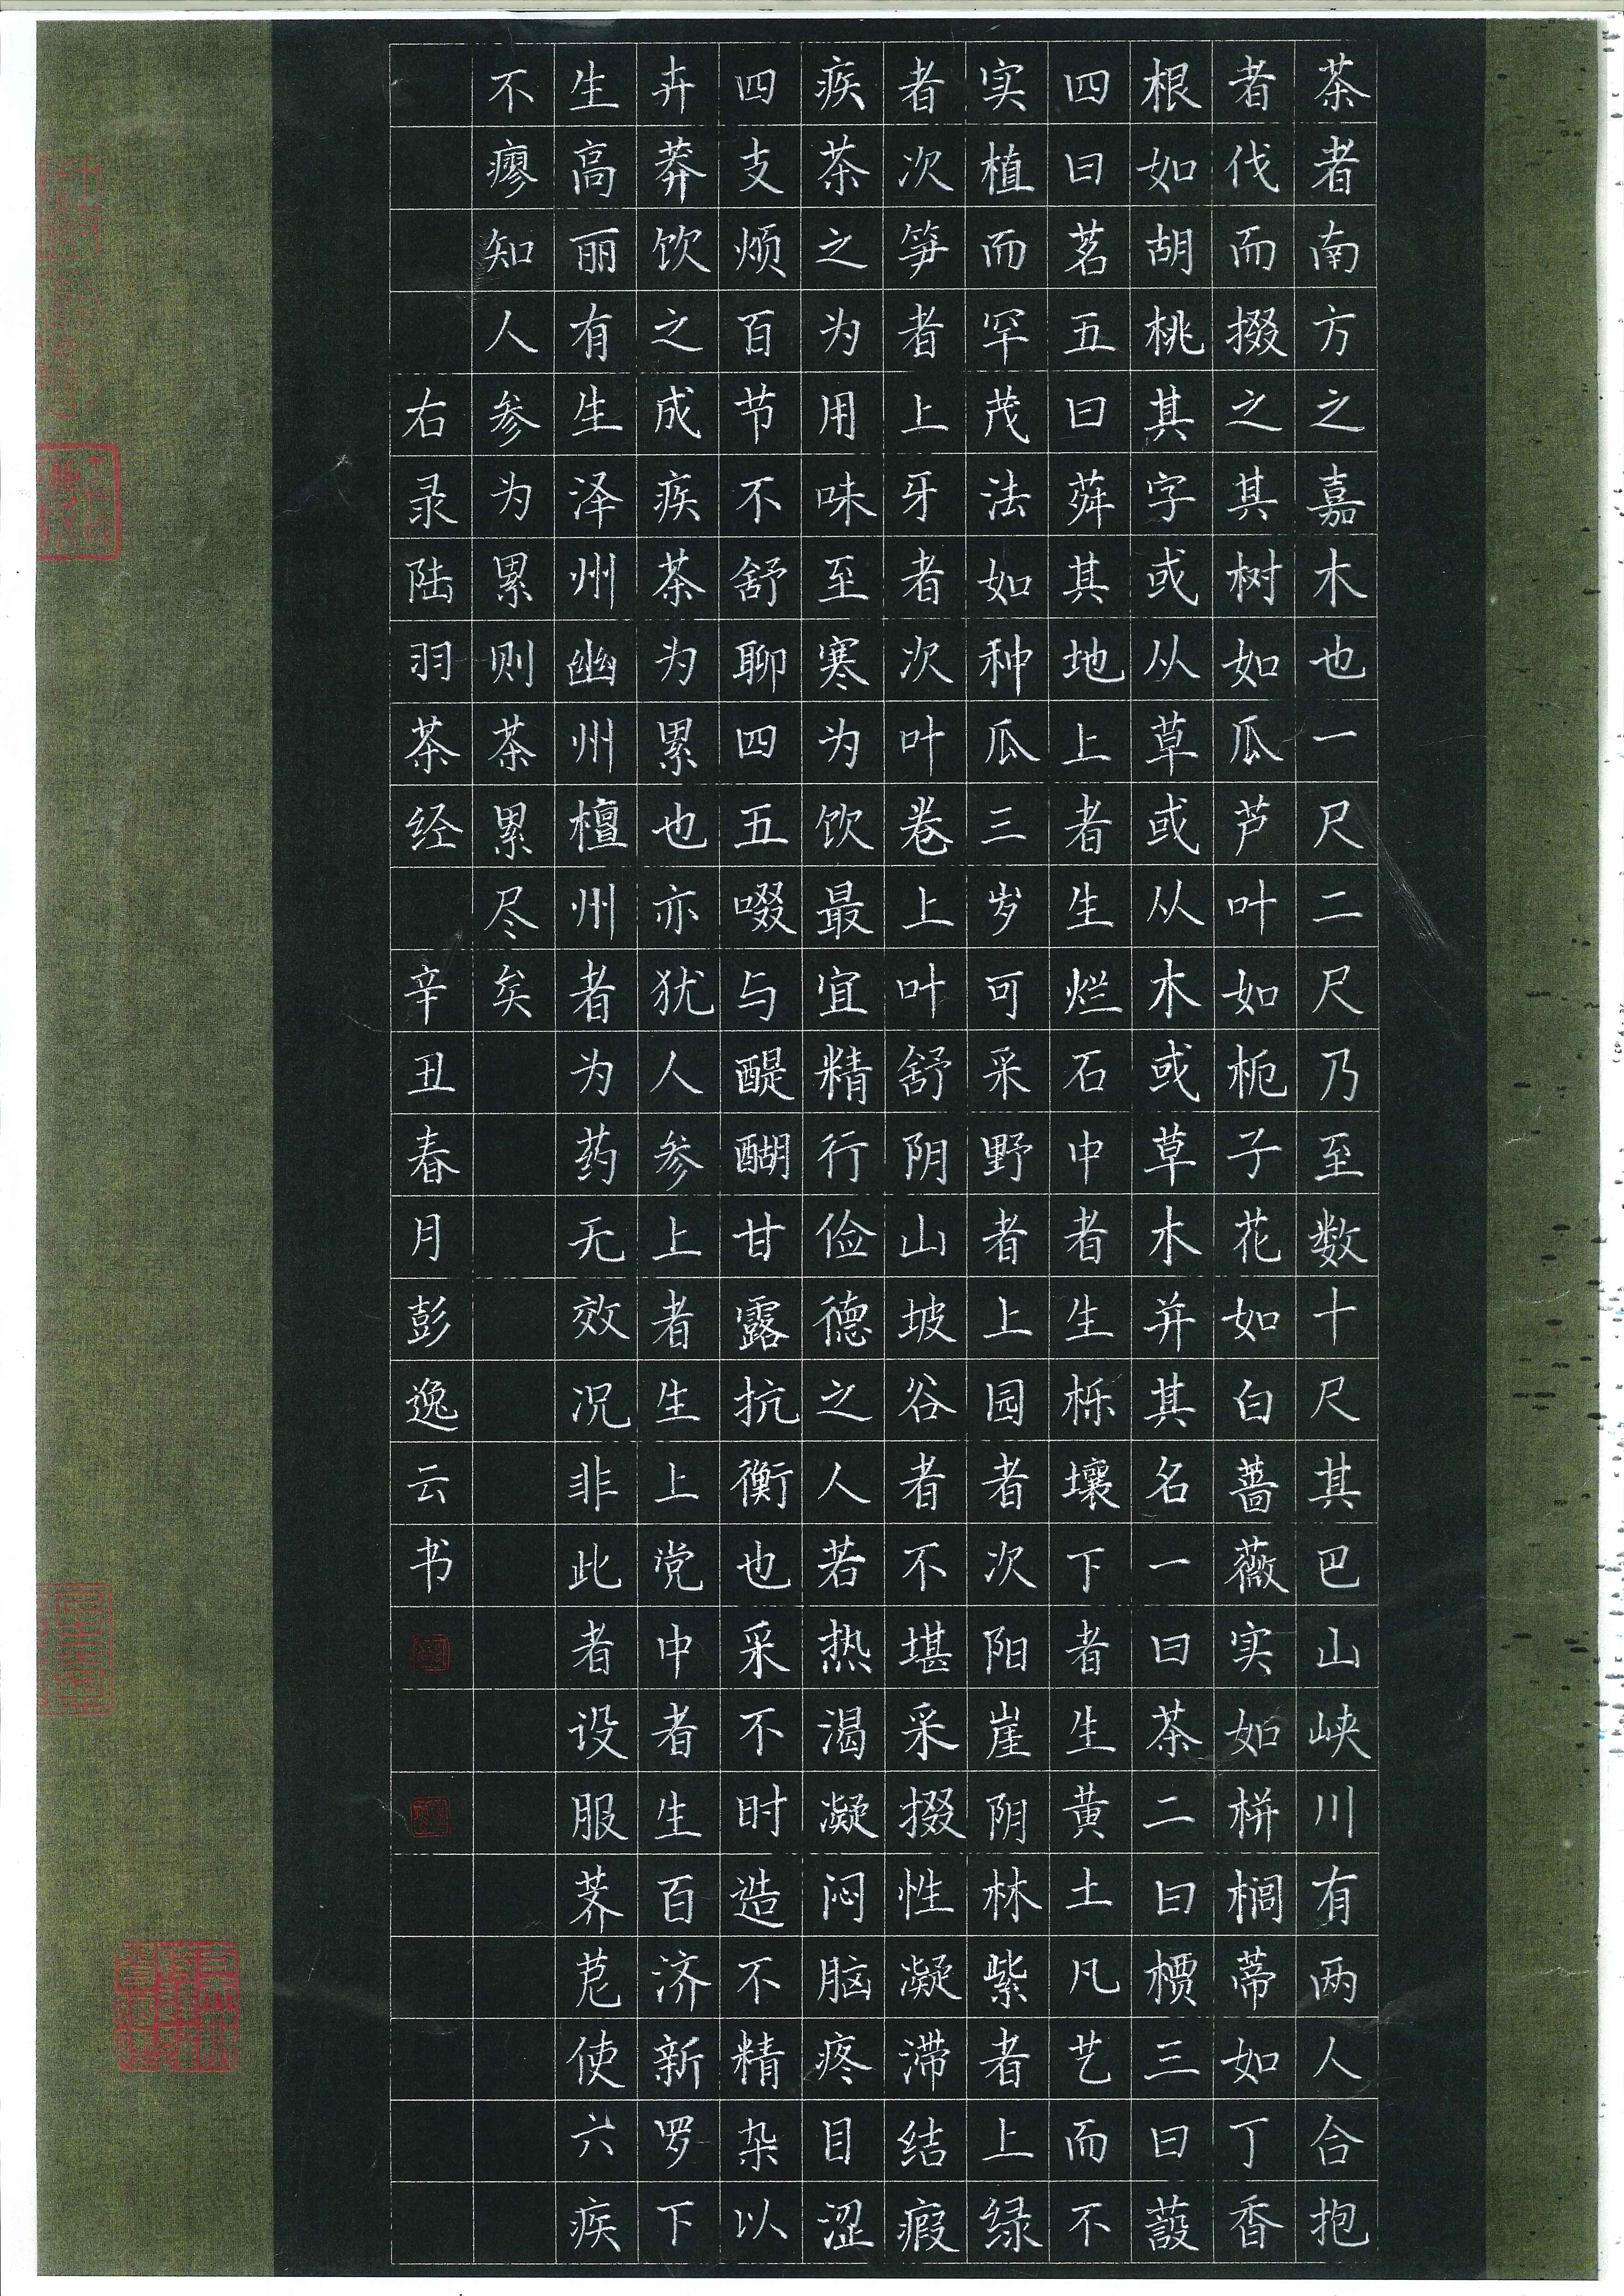 茶者南方之嘉木也一尺二尺乃至数十尺其巴山峡川有两人合抱
者伐而掇之其树如瓜芦叶如栀子花如白蔷薇实如栟榈蒂如丁香
根如胡桃其字或从草或从木或草木并其名一曰茶二曰槚三曰蔎
四曰茗五曰荈其地上者生烂石中者生栎壤下者生黄土凡艺而不
实植而罕茂法如种瓜三岁可采野者上园者次阳崖阴林紫者上绿
者次笋者上牙者次叶卷上叶舒阴山坡谷者不堪采掇性凝滞结瘕
疾茶之为用味至寒为饮最宜精行俭德之人若热渴凝闷脑疼目涩
四支烦百节不舒聊四五啜与醍醐甘露抗衡也采不时造不精杂以
卉莽饮之成疾茶为累也亦犹人参上者生上党中者生百济新罗下
生高丽有生泽州幽州檀州者为药无效况非此者设服荠苨使六疾
不瘳知人参为累则茶累尽矣
右录陆羽茶经 辛丑春月彭逸云书